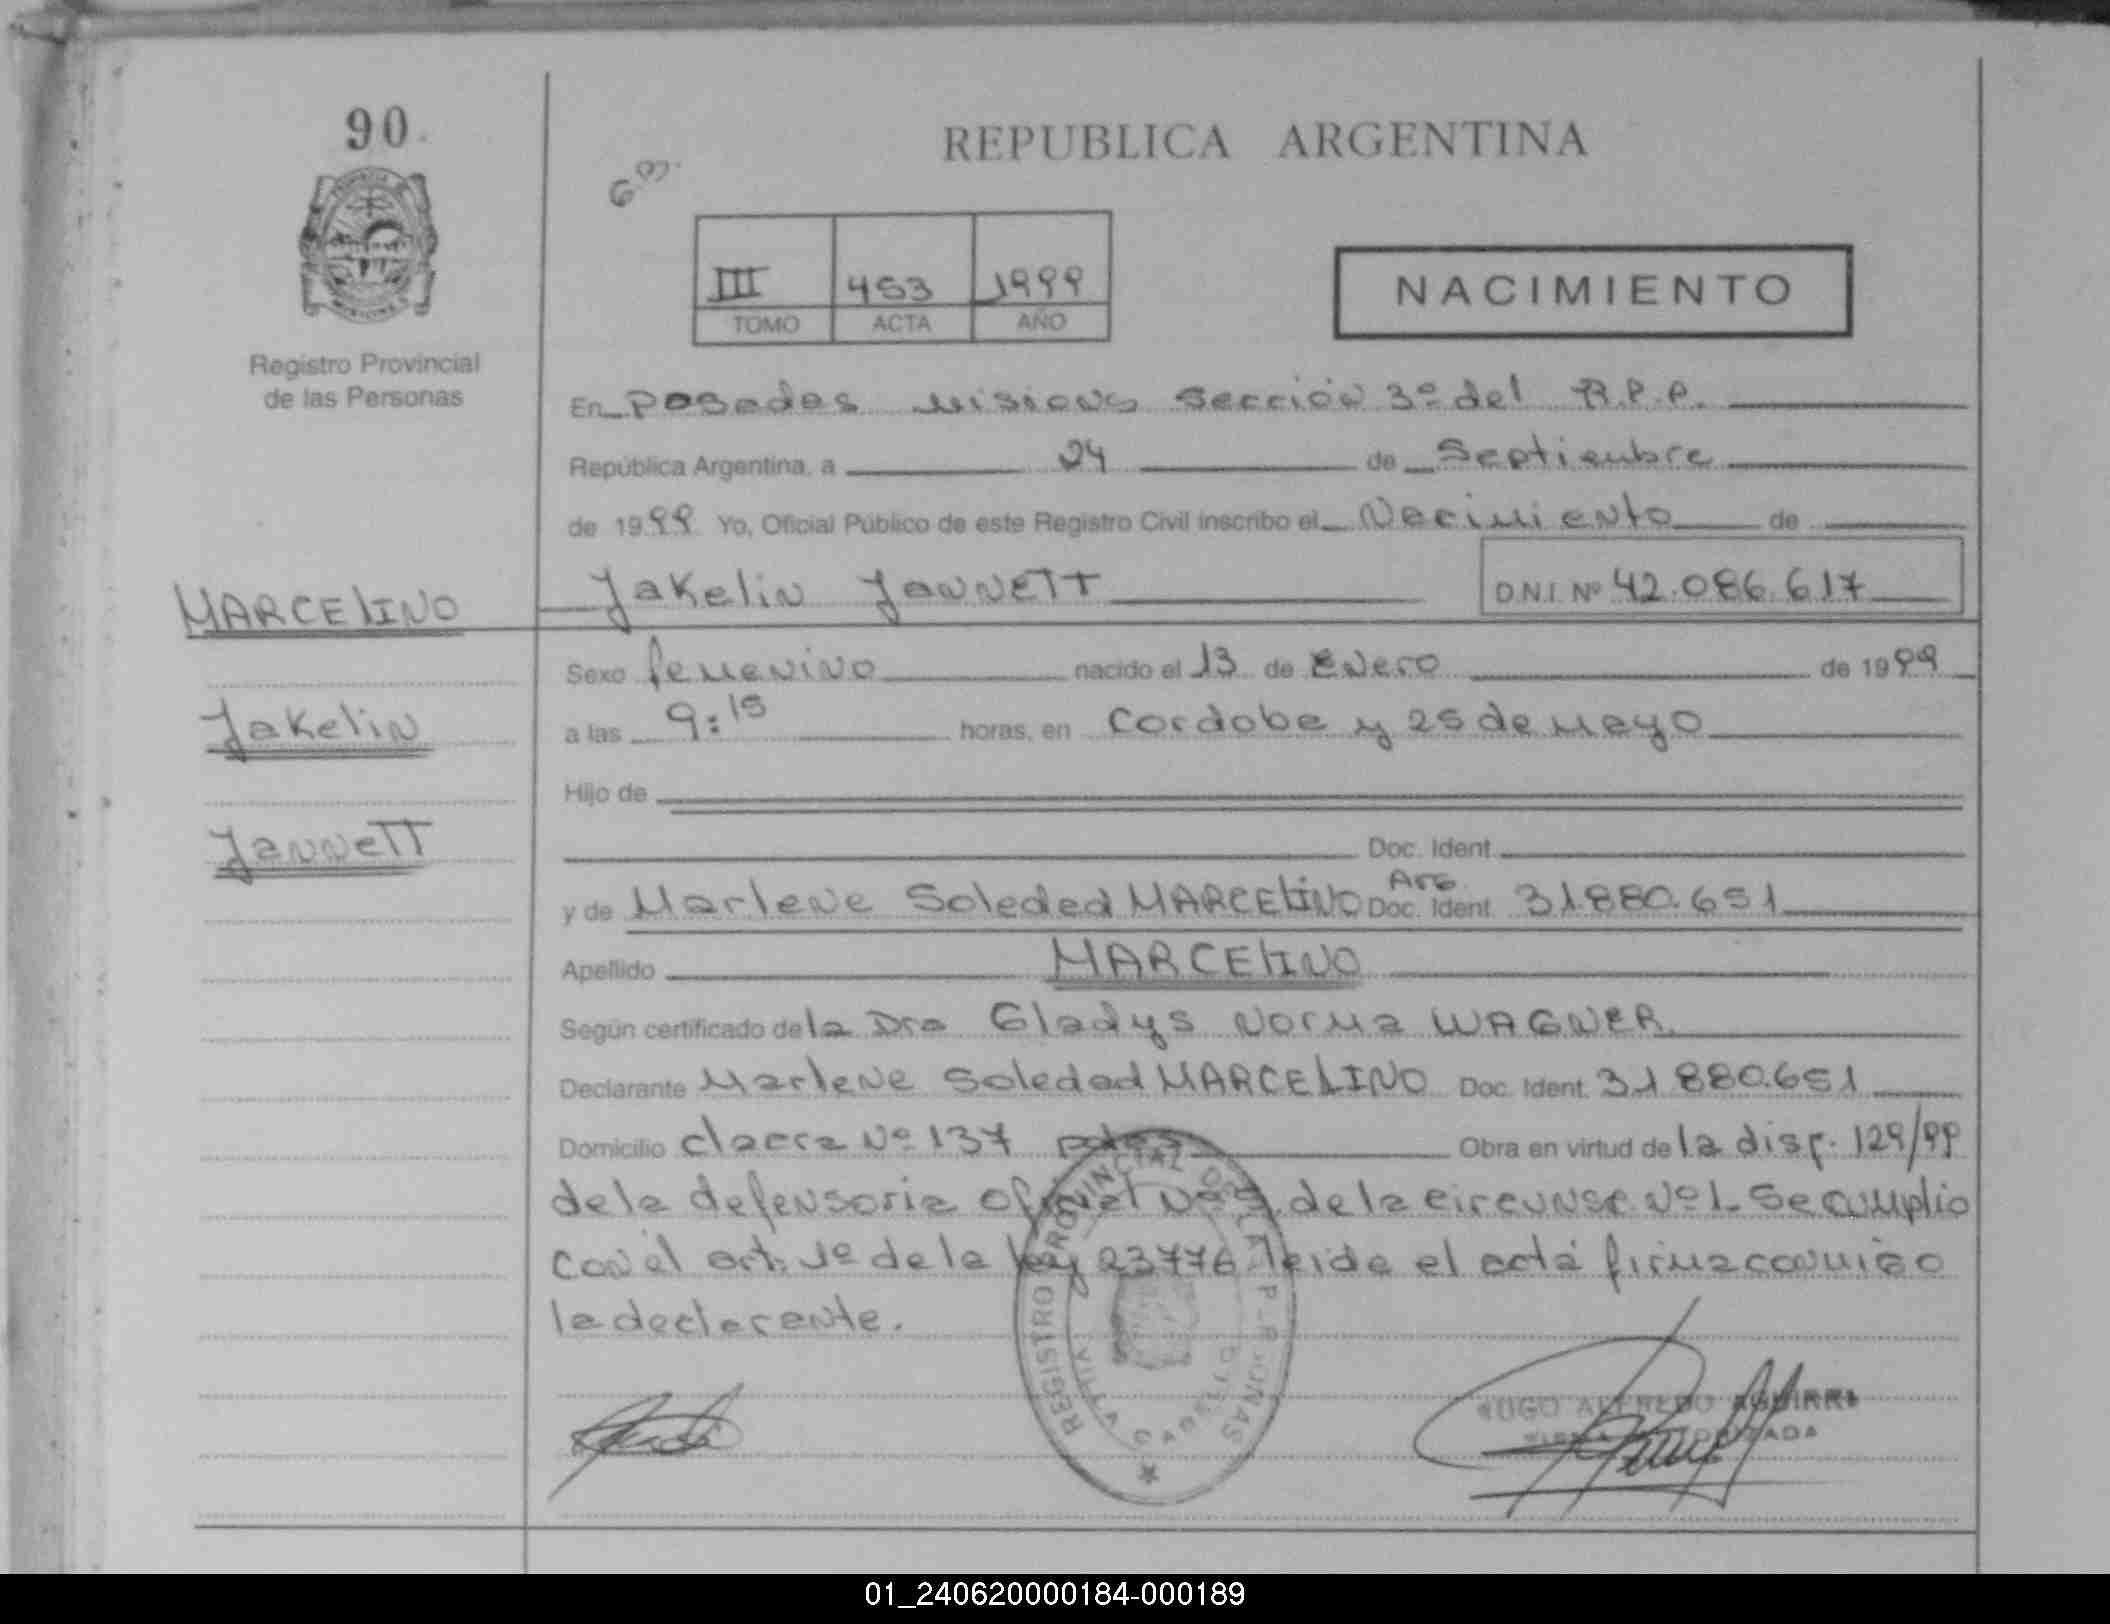 90.
REPUBLICA ARGENTINA
III 453 1999
TOMO ACTA AÑO
NACIMIENTO
Registro Provincial
de las Personas
En Posadas Misiones Sección 3º del R.P.P.
República Argentina, a 24 de Septiembre
de 1999 Yo, Oficial Público de este Registro Civil inscribo el Nacimiento de
MARCELINO Jakelin Jannett D.N.I. Nº 42.086.617
Sexo femenino nacido el 13 de Enero de 1999
Jakelin
a las 9:15 horas, en Cordoba y 25 de mayo
Hijo de
Jannett
Doc. Ident.
y de Marlene Soledad MARCELINO Arg. Doc. Ident. 31.880.651
Apellido MARCELINO
Según certificado de la Dra Gladys Norma WAGNER
Declarante Marlene Soledad MARCELINO Doc. Ident. 31.880.651
Domicilio chacra Nº 137 pdas Obra en virtud de la disp. 129/99
de la defensoria oficial Nº de la circunsc. Nº 1. Se cumplio
con el art. 1º de la ley 23776 leida el acta firma conmigo
la declarante.
REGISTRO PROVINCIAL DE LAS PERSONAS
HUGO ALFREDO AGUIRRE
FIRMA AUTORIZADA
01_240620000184-000189